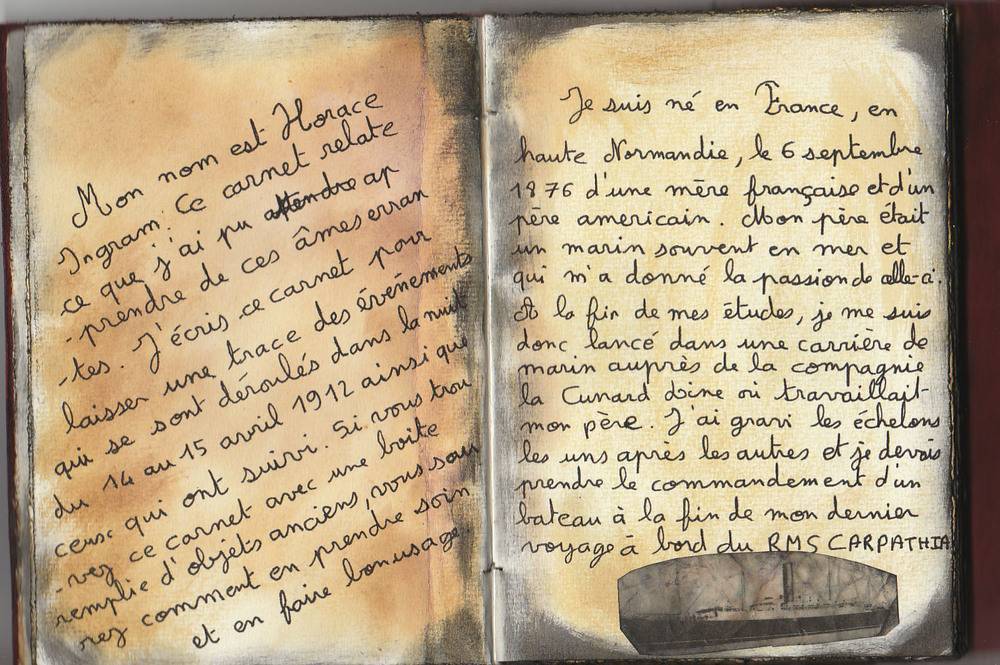 Mon nom est Horace
Ingram. Ce carnet relate
ce que j'ai pu attendre ap
-prendre de ces âmes erran
-tes. J'écris ce carnet pour
laisser une trace des événements
qui se sont déroulés dans la nuit
du 14 au 15 avril 1912 ainsi que
ceux qui ont suivi. Si vous trou
-vez ce carnet avec une boite
remplie d'objets anciens, vous sau
rez comment en prendre soin
et en faire bon usage.
Je suis né en France, en
haute Normandie, le 6 septembre
1876 d'une mère française et d'un
père americain. Mon père était
un marin souvent en mer et
qui m'a donné la passion de celle-ci.
A la fin de mes études, je me suis
donc lancé dans une carrière de
marin auprès de la compagnie
la Cunard Line où travaillait
mon père. J'ai gravi les échelons
les uns après les autres et je devais
prendre le commandement d'un
bateau à la fin de mon dernier
voyage à bord du RMS CARPATHIA